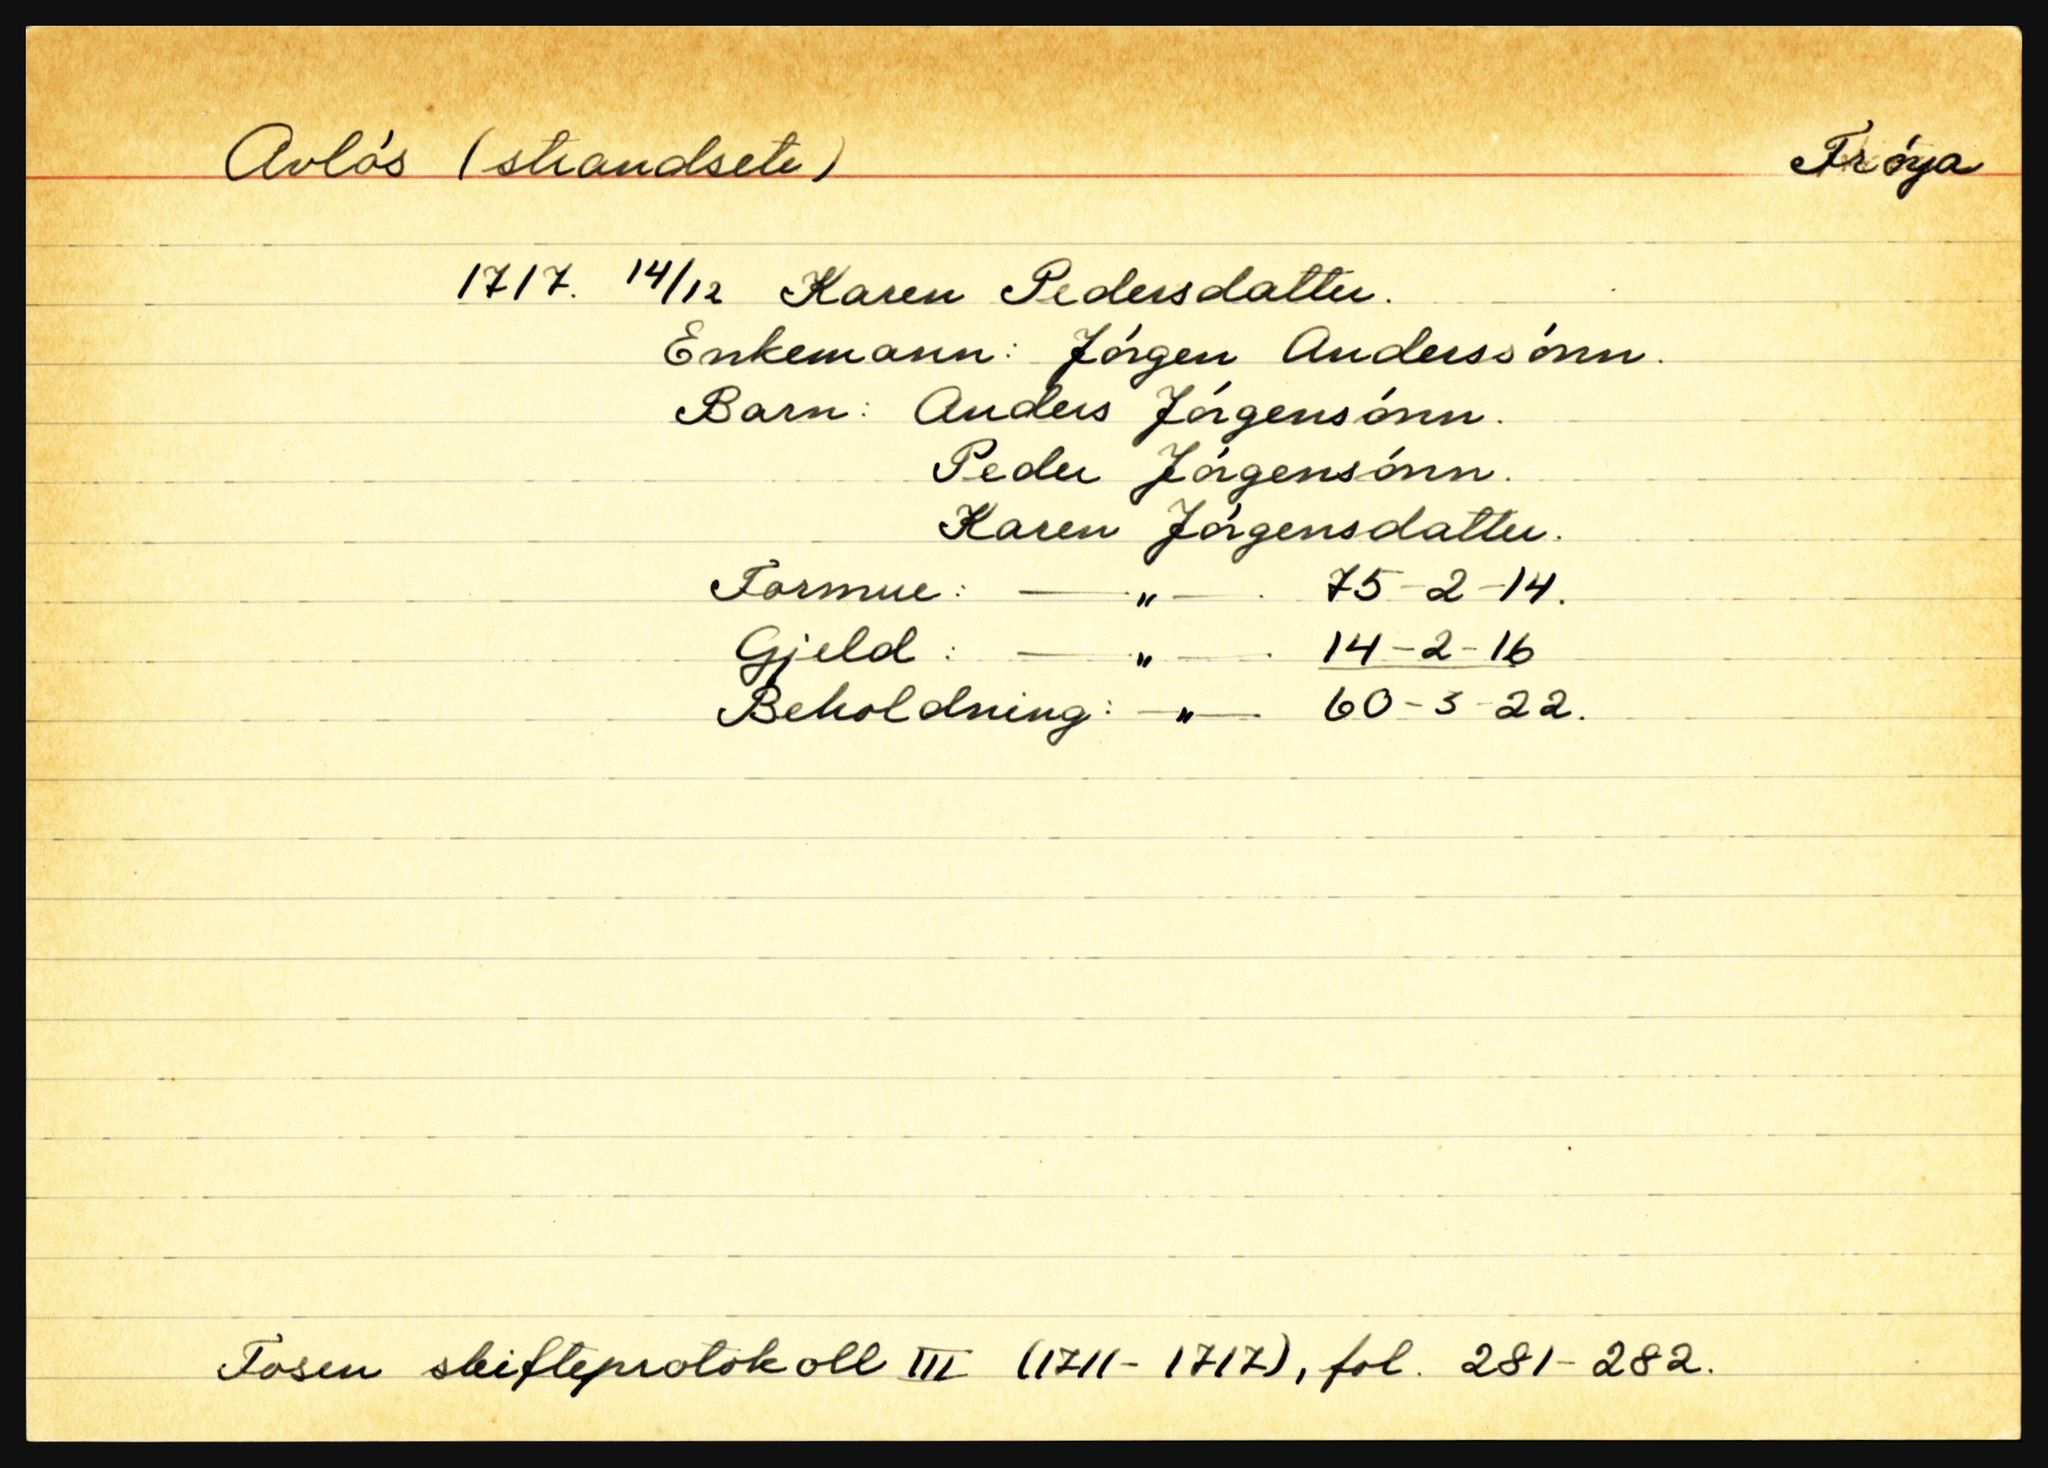 Avlós (strandsete) Fróya
1717. 14/12 Karen Pedersdatter.
Enkemann: Jórgen Anderssónn.
Barn: Anders Jórgensónn.
Peder Jórgensónn.
Karen Jórgensdatter.
Formue: —„— 75-2-14.
Gjeld: —„— 14-2-16
Beholdning: —„— 60-3-22.
Fosen skifteprotokoll III (1711-1717), fol. 281-282.